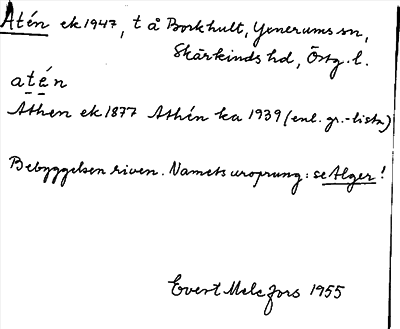 Atén ek 1947, t å Borkhult, Yxnerums sn,
Skärkinds hd, Östg. l.
atén
Athen ek 1877 Athén ka 1939 (enl. gr.-lista)
Bebyggelsen riven. Namets ursprung: se Alger!
Evert Melefors 1955